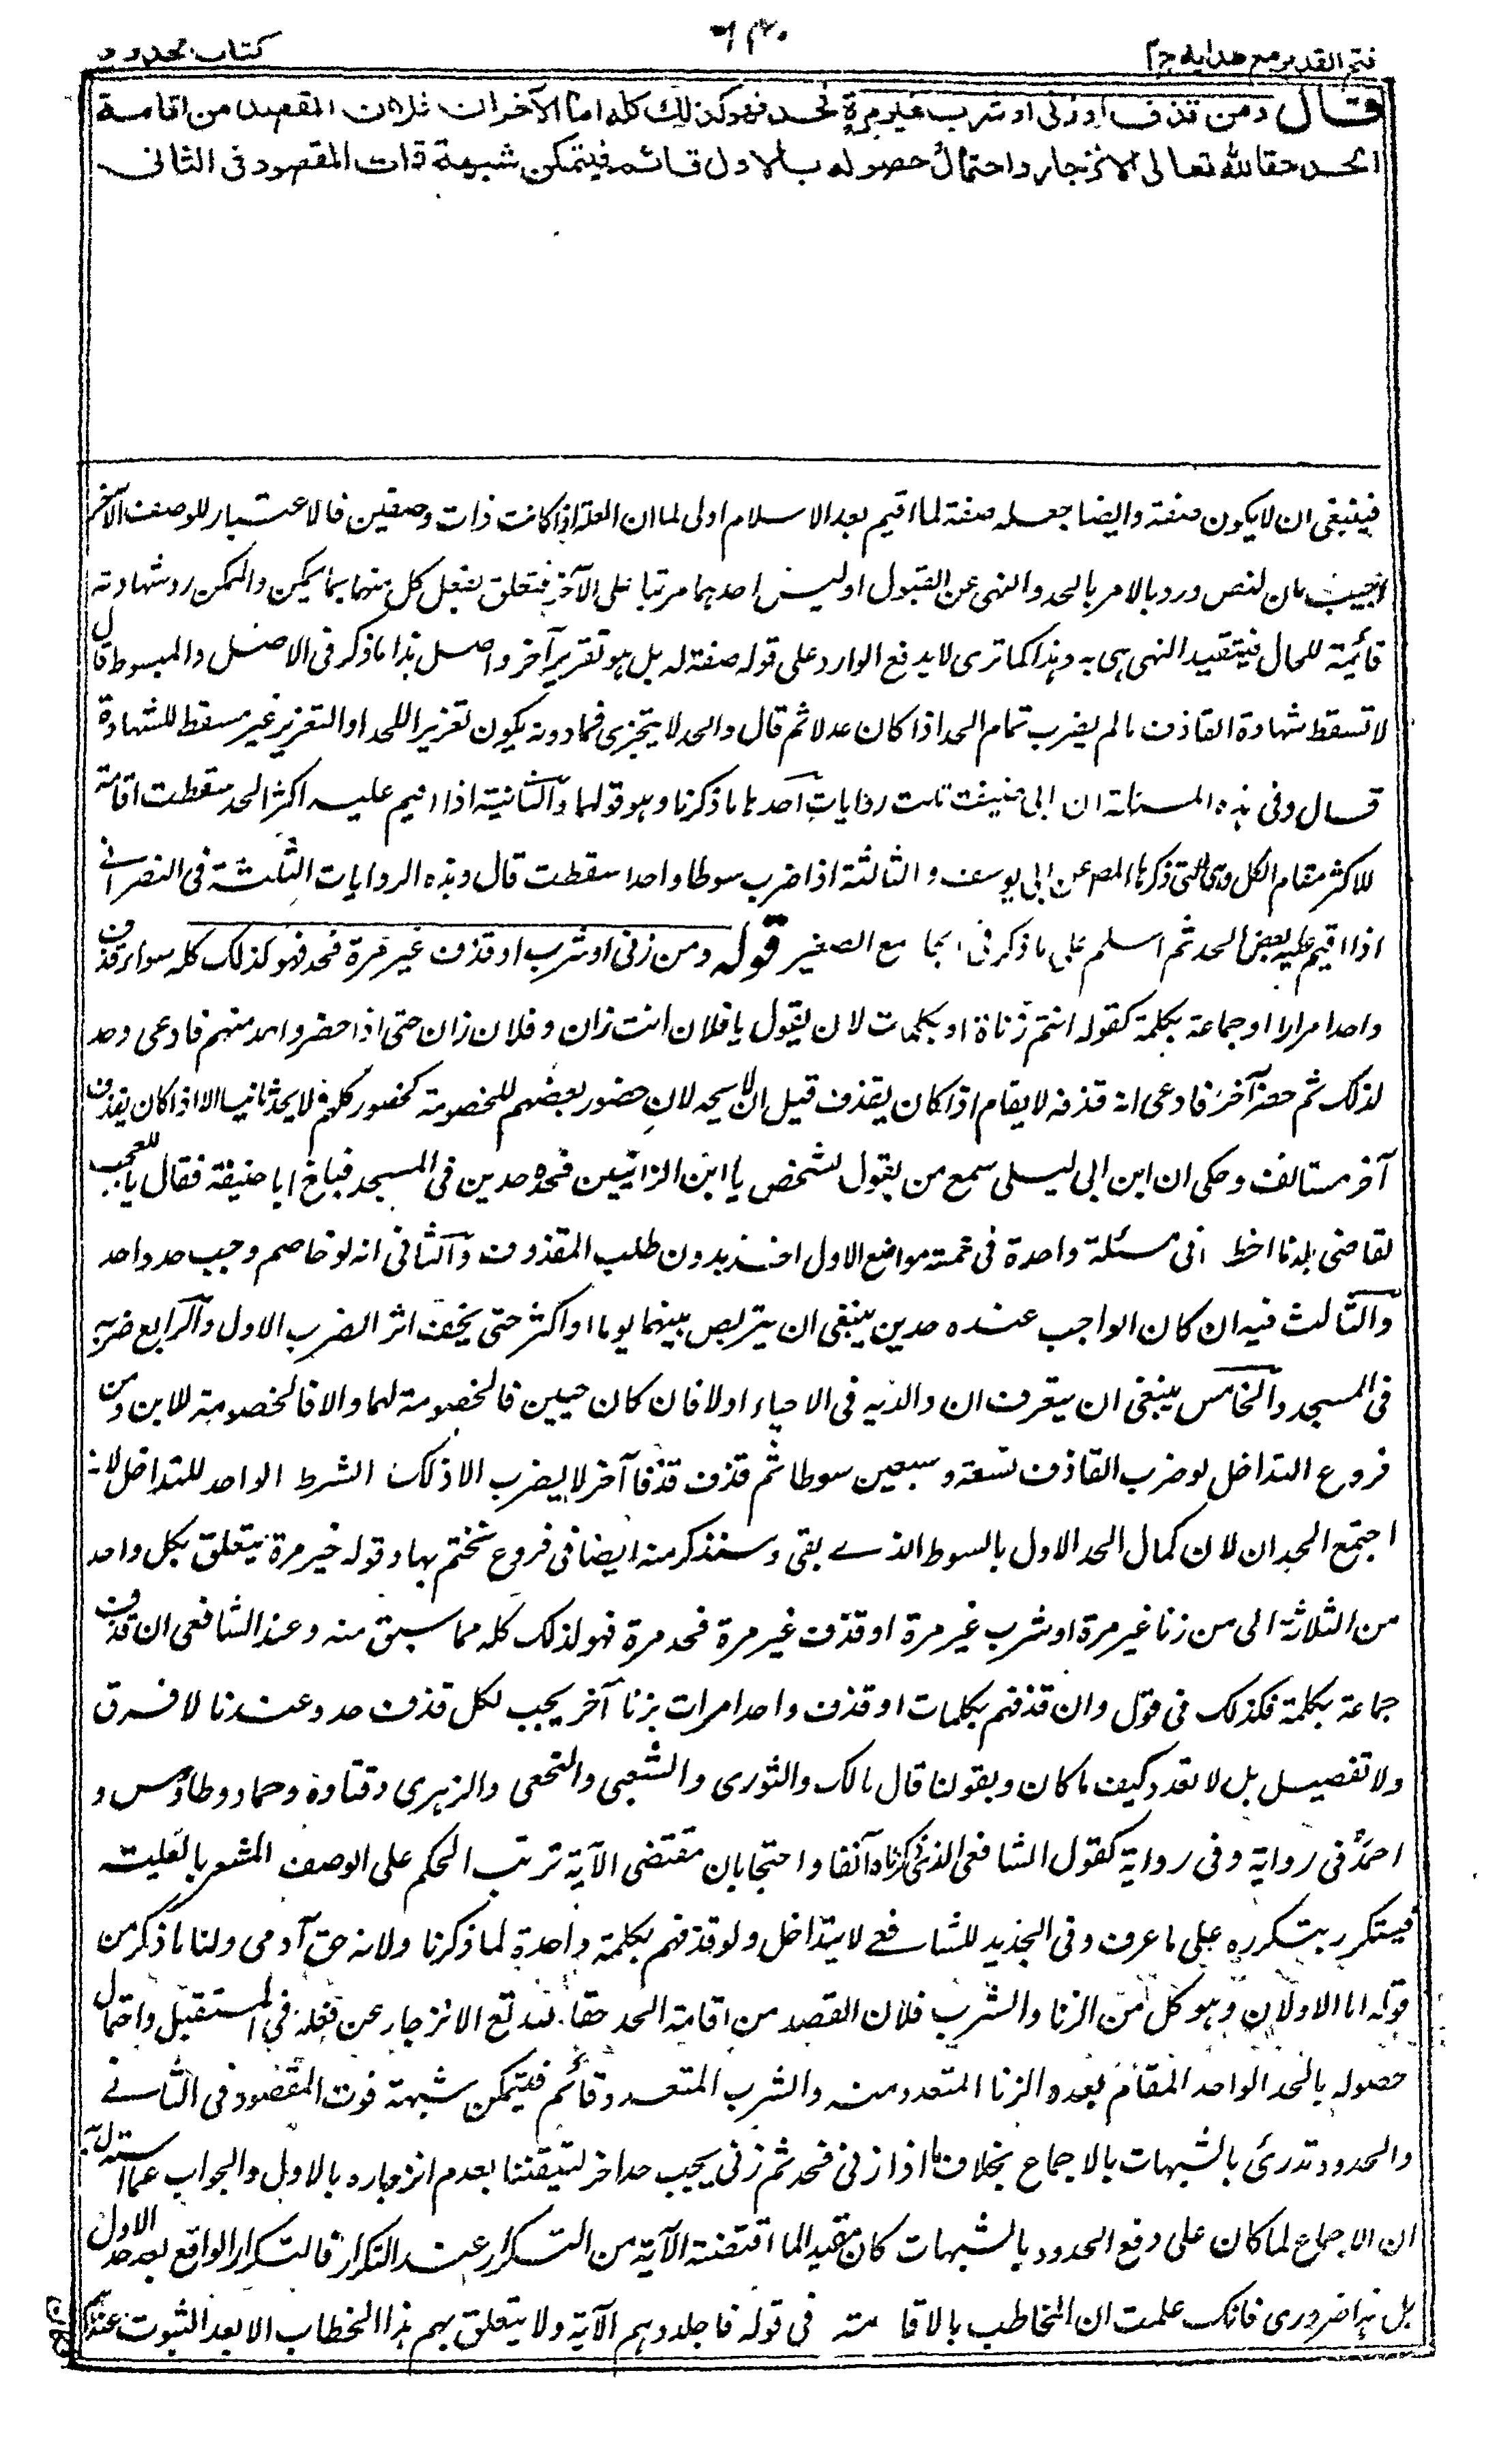 فتح القدير مع هدايه ج٢
كتاب الحدود
قال ومن قذف او زنى او شرب غير مرة فحد فهو كذلك كله اما الآخران فلان المقصد من اقامة
الحد حقا لله تعالى الانزجار واحتمال حصوله بالاول قائم فيتمكن شبهة فوات المقصود فى الثانى
فينبغى ان لا يكون صفة وايضا جعله صفة لما اقيم بعد الاسلام اولى لما ان العلة اذا كانت ذات وصفين فالاعتبار للوصف الآخر
اجيب بان النص ورد بالامر بالحد والنهى عن القبول او ليس احدهما مرتبا على الآخر فتعلق بفعل كل منهما بما يمكن والممكن رد شهادته
قائمة للحال فيتقيد النهى به وهذا كما ترى لا يدفع الوارد على قوله صفة له بل هو تقرير آخر واصل هذا ما ذكر فى الاصل والمبسوط قال
لا تسقط شهادة القاذف ما لم يضرب تمام الحد اذا كان عدلا ثم قال والحد لا يتجزى فما دونه يكون تعزيرا لا حدا والتعزير غير مسقط للشهادة
قال وفى هذه المسئلة ان ابى حنيفة ثلث روايات احدها ما ذكرنا وهو قولهما والثانية اذا اقيم عليه اكثر الحد سقطت اقامة
للاكثر مقام الكل وهى التى ذكرها المص عن ابى يوسف و الثالثة اذا ضرب سوطا واحدا سقطت قال وهذه الروايات الثلثة فى النصرانى
اذا اقيم عليه بعض الحد ثم اسلم على ما ذكر فى الجامع الصغير قوله ومن زنى او شرب او قذف غير مرة فحد فهو كذلك كله سواء قذف
واحدا مرارا او جماعة بكلمة كقوله انتم زناة او بكلمات لان يقول يا فلان انت زان وفلان زان حتى اذا حضر واحد منهم فادعى وحد
لذلك ثم حضر آخر فادعى انه قذفه لا يقام اذا كان بقذف قبل ان يحد لان حضور بعضهم للخصومة كحضور كلهم لا يحد ثانيا الا اذا كان بقذف
آخر مستانف وحكى ان ابن ابى ليلى سمع من يقول لشخص يا ابن الزانيين فحده حدين فى المسجد فبلغ ابا حنيفة فقال يا للعجب
لقاضى بلدنا اخطا فى مسئلة واحدة فى خمسة مواضع الاول اخذه بدون طلب المقذوف والثانى انه لو خاصم وجب حد واحد
والثالث فيه ان كان الواجب عنده حدين ينبغى ان يتربص بينهما يوما او اكثر حتى يخف اثر الضرب الاول والرابع ضربه
فى المسجد والخامس ينبغى ان يتعرف ان والديه فى الاحياء اولا فان كان حيين فالخصومة لهما والا فالخصومة للابن ومن
فروع التداخل لو ضرب القاذف تسعة وسبعين سوطا ثم قذف قذفا آخر لا يضرب الا ذلك الشرط الواحد للتداخل لانه
اجتمع الحدان لان كمال الحد الاول بالسوط الذى بقى وسنذكر منه ايضا فى فروع نختم بها وقوله غير مرة يتعلق بكل واحد
من الثلاثة الى من زنا غير مرة او شرب غير مرة او قذف غير مرة فحد مرة فهو لذلك كله مما سبق منه وعند الشافعى ان قذف
جماعة بكلمة فكذلك فى قول وان قذفهم بكلمات او قذف واحدا مرات بزنا آخر يجب لكل قذف حد وعندنا لا فرق
ولا تفصيل بل لا تعدد كيف ما كان وبقولنا قال مالك والثورى والشعبى والنخعى والزهرى وقتادة وحماد وطاؤس و
احمد فى رواية وفى رواية كقول الشافعى الذى ذكرناه آنفا واحتجا بان مقتضى الآية ترتب الحكم على الوصف المشعر بالعلية
فيتكرر بتكرره على ما عرف وفى الجديد للشافعى لا يتداخل ولو قذفهم بكلمة واحدة لما ذكرنا ولانه حق آدمى ولنا ما ذكر من
قوله اما الاولان وهو كل من الزنا والشرب فلان القصد من اقامة الحد حقا لله تع الانزجار عن فعله فى المستقبل واحتمال
حصوله بالحد الواحد المقام بعده الزنا المتعدد منه والشرب المتعدد قائم فيتمكن شبهة فوت المقصود فى الثانى
والحدود تدرئ بالشبهات بالاجماع بخلاف ما اذا زنى فحد ثم زنى يجب حد اخر لتيقننا بعدم انزجاره بالاول والجواب عما استدل به
ان الاجماع لما كان على دفع الحدود بالشبهات كان مقيدا لما اقتضته الآية من التكرار عند التكرار فالتكرار الواقع بعد حد الاول
بل هذا ضرورى فانك علمت ان المخاطب بالاقامة فى قوله فاجلدوهم الآية ولا يتعلق بهم هذا الخطاب الا بعد الثبوت عندهم